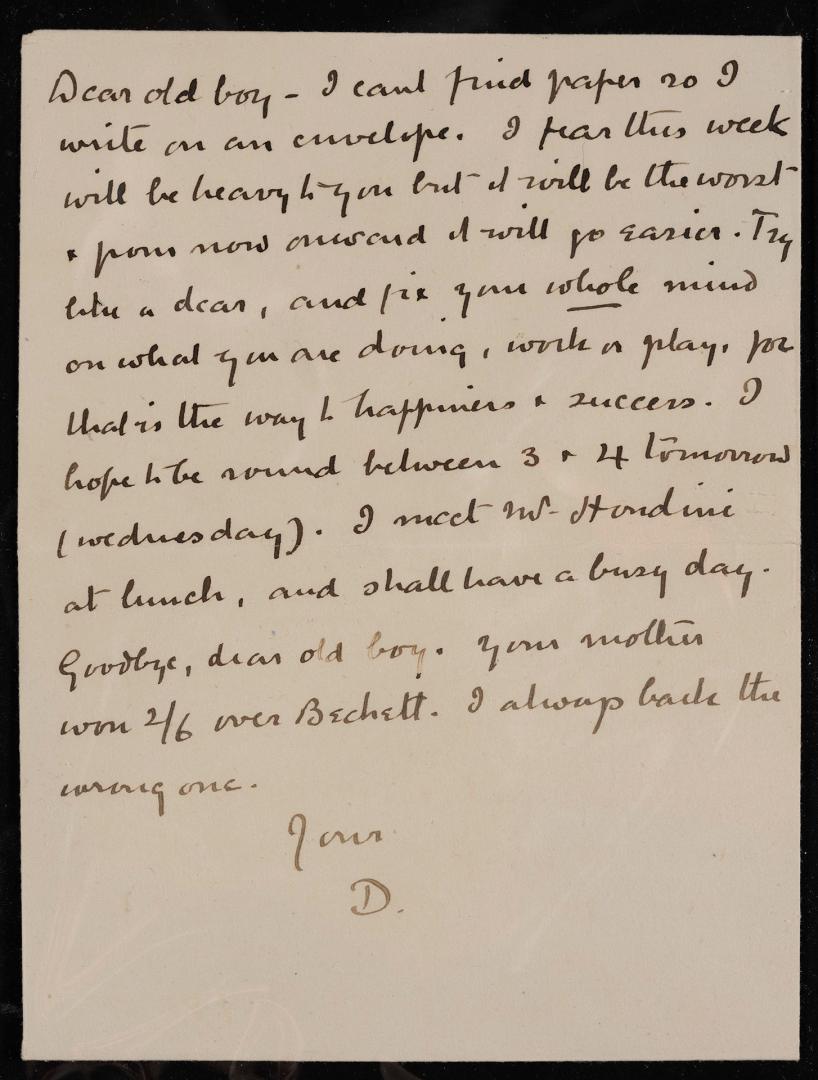 Dear old boy - I cant find paper so I
write on an envelope. I fear this week
will be heavy to you but it will be the worst
& from now onward it will go easier. Try
like a dear, and fix your whole mind
on what you are doing, work or play, for
that is the way to happiness & success. I
hope to be round between 3 & 4 tomorrow
(wednesday). I meet Mr Houdini
at lunch, and shall have a busy day.
Goodbye, dear old boy. Your mother
won 2/6 over Beckett. I always back the
wrong one.
Yours
D.